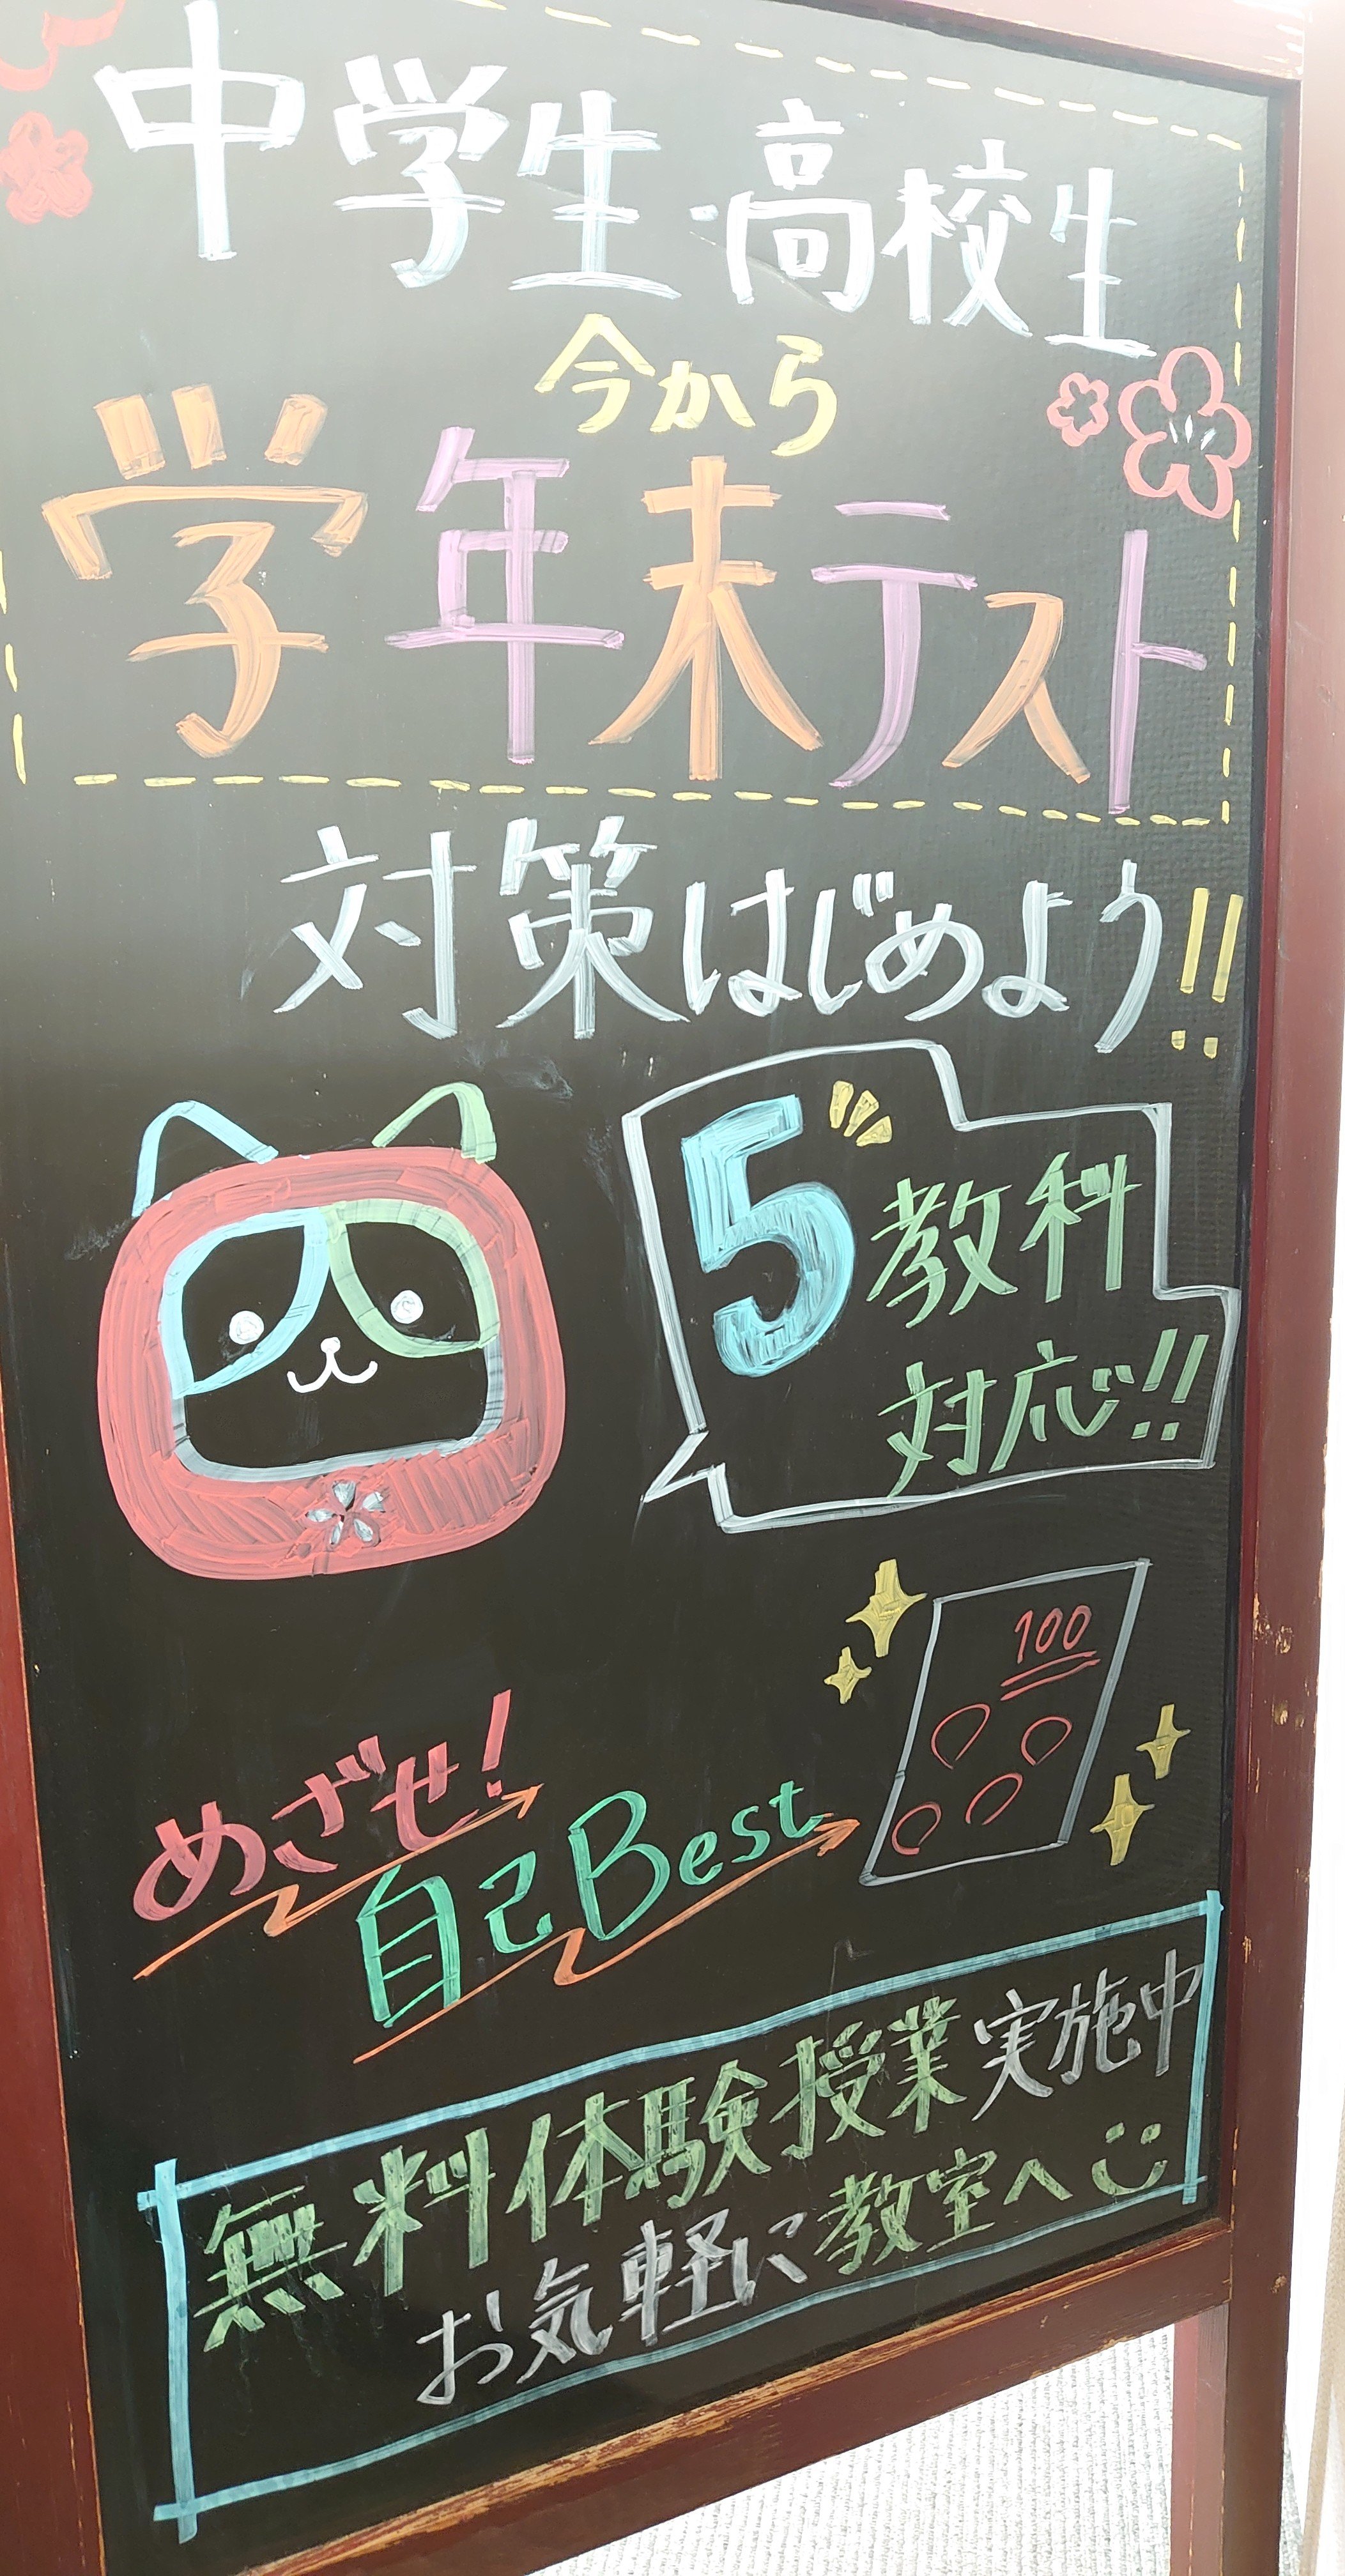 中学生・高校生
今から
学年末テスト
対策はじめよう!!
5教科
対応!!
100
めざせ!
自己Best
無料体験授業実施中
お気軽に教室へ